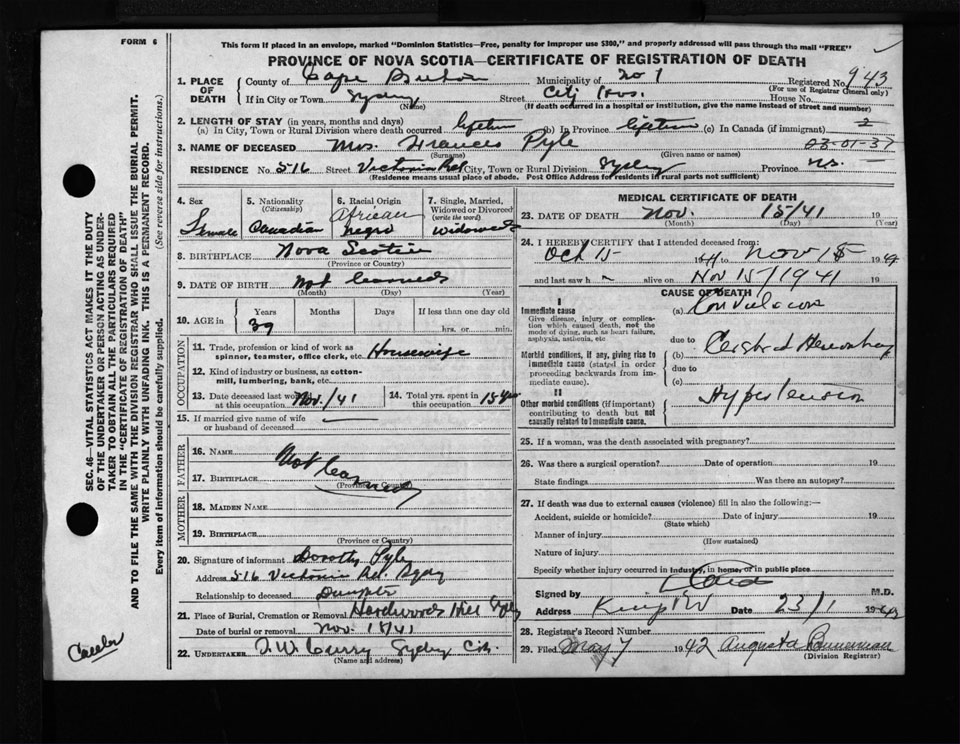 FORM 6
This form if placed in an envelope, marked "Dominion Statistics—Free, penalty for improper use $300," and properly addressed will pass through the mail "FREE"
PROVINCE OF NOVA SCOTIA—CERTIFICATE OF REGISTRATION OF DEATH
1. PLACE OF DEATH
County of Cape Breton Municipality of No 1 Registered No 943
(For use of Registrar General only)
If in City or Town Sydney Street City Hos. House No.
(Name) (If death occurred in a hospital or institution, give the name instead of street and number)
2. LENGTH OF STAY (in years, months and days)
(a) In City, Town or Rural Division where death occurred lifetime (b) In Province lifetime (c) In Canada (if immigrant) 2
3. NAME OF DECEASED Mrs. Frances Pyle
(Surname) (Given name or names)
RESIDENCE No. 516 Street Victoria Rd City, Town or Rural Division Sydney Province N.S.
(Residence means usual place of abode. Post Office Address for residents in rural parts not sufficient)
4. Sex Female
5. Nationality (Citizenship) Canadian
6. Racial Origin African negro
7. Single, Married, Widowed or Divorced (write the word) widowed
8. BIRTHPLACE Nova Scotia
(Province or Country)
9. DATE OF BIRTH Not learned
(Month) (Day) (Year)
10. AGE in Years Months Days If less than one day
39 hrs. or min.
OCCUPATION
11. Trade, profession or kind of work as spinner, teamster, office clerk, etc. Housewife
12. Kind of industry or business, as cotton-mill, lumbering, bank, etc.
13. Date deceased last worked at this occupation Nov./41 14. Total yrs. spent in this occupation 18 years
15. If married give name of wife or husband of deceased
FATHER
16. NAME
Not learned
17. BIRTHPLACE
(Province or Country)
MOTHER
18. MAIDEN NAME
19. BIRTHPLACE
(Province or Country)
20. Signature of informant Dorothy Pyle
Address 516 Victoria Rd. Sydney
Relationship to deceased Daughter
21. Place of Burial, Cremation or Removal Hardwood Hill Sydney
Date of burial or removal Nov. 18/41
22. UNDERTAKER T.W. Curry Sydney C.B.
(Name and address)
MEDICAL CERTIFICATE OF DEATH
23. DATE OF DEATH Nov. 15/41 19
(Month) (Day) (Year)
24. I HEREBY CERTIFY that I attended deceased from:
Oct 15 1941 to Nov 15 1941
and last saw h alive on Nov 15/1941 19
CAUSE OF DEATH
I
Immediate cause
Give disease, injury or complication which caused death, not the mode of dying, such as heart failure, asphyxia, asthenia, etc
(a) Convulsions
due to
Morbid conditions, if any, giving rise to immediate cause (stated in order proceeding backwards from immediate cause).
(b) Cerebral Hemorrhage
due to
(c)
II
Other morbid conditions (if important) contributing to death but not causally related to immediate cause.
Hypertension
25. If a woman, was the death associated with pregnancy?
26. Was there a surgical operation? Date of operation 19
State findings Was there an autopsy?
27. If death was due to external causes (violence) fill in also the following:—
Accident, suicide or homicide? Date of injury 19
(State which)
Manner of injury
(How sustained)
Nature of injury
Specify whether injury occurred in industry, in home, or in public place
Signed by M.D.
Address Date 23/1 1942
28. Registrar's Record Number
29. Filed May 7 1942 Augusta
(Division Registrar)
SEC. 46—VITAL STATISTICS ACT MAKES IT THE DUTY
OF THE UNDERTAKER OR PERSON ACTING AS UNDER-
TAKER TO OBTAIN ALL THE PARTICULARS REQUIRED
IN THE "CERTIFICATE OF REGISTRATION OF DEATH"
AND TO FILE THE SAME WITH THE DIVISION REGISTRAR WHO SHALL ISSUE THE BURIAL PERMIT.
WRITE PLAINLY WITH UNFADING INK. THIS IS A PERMANENT RECORD.
Every item of information should be carefully supplied. (See reverse side for instructions.)